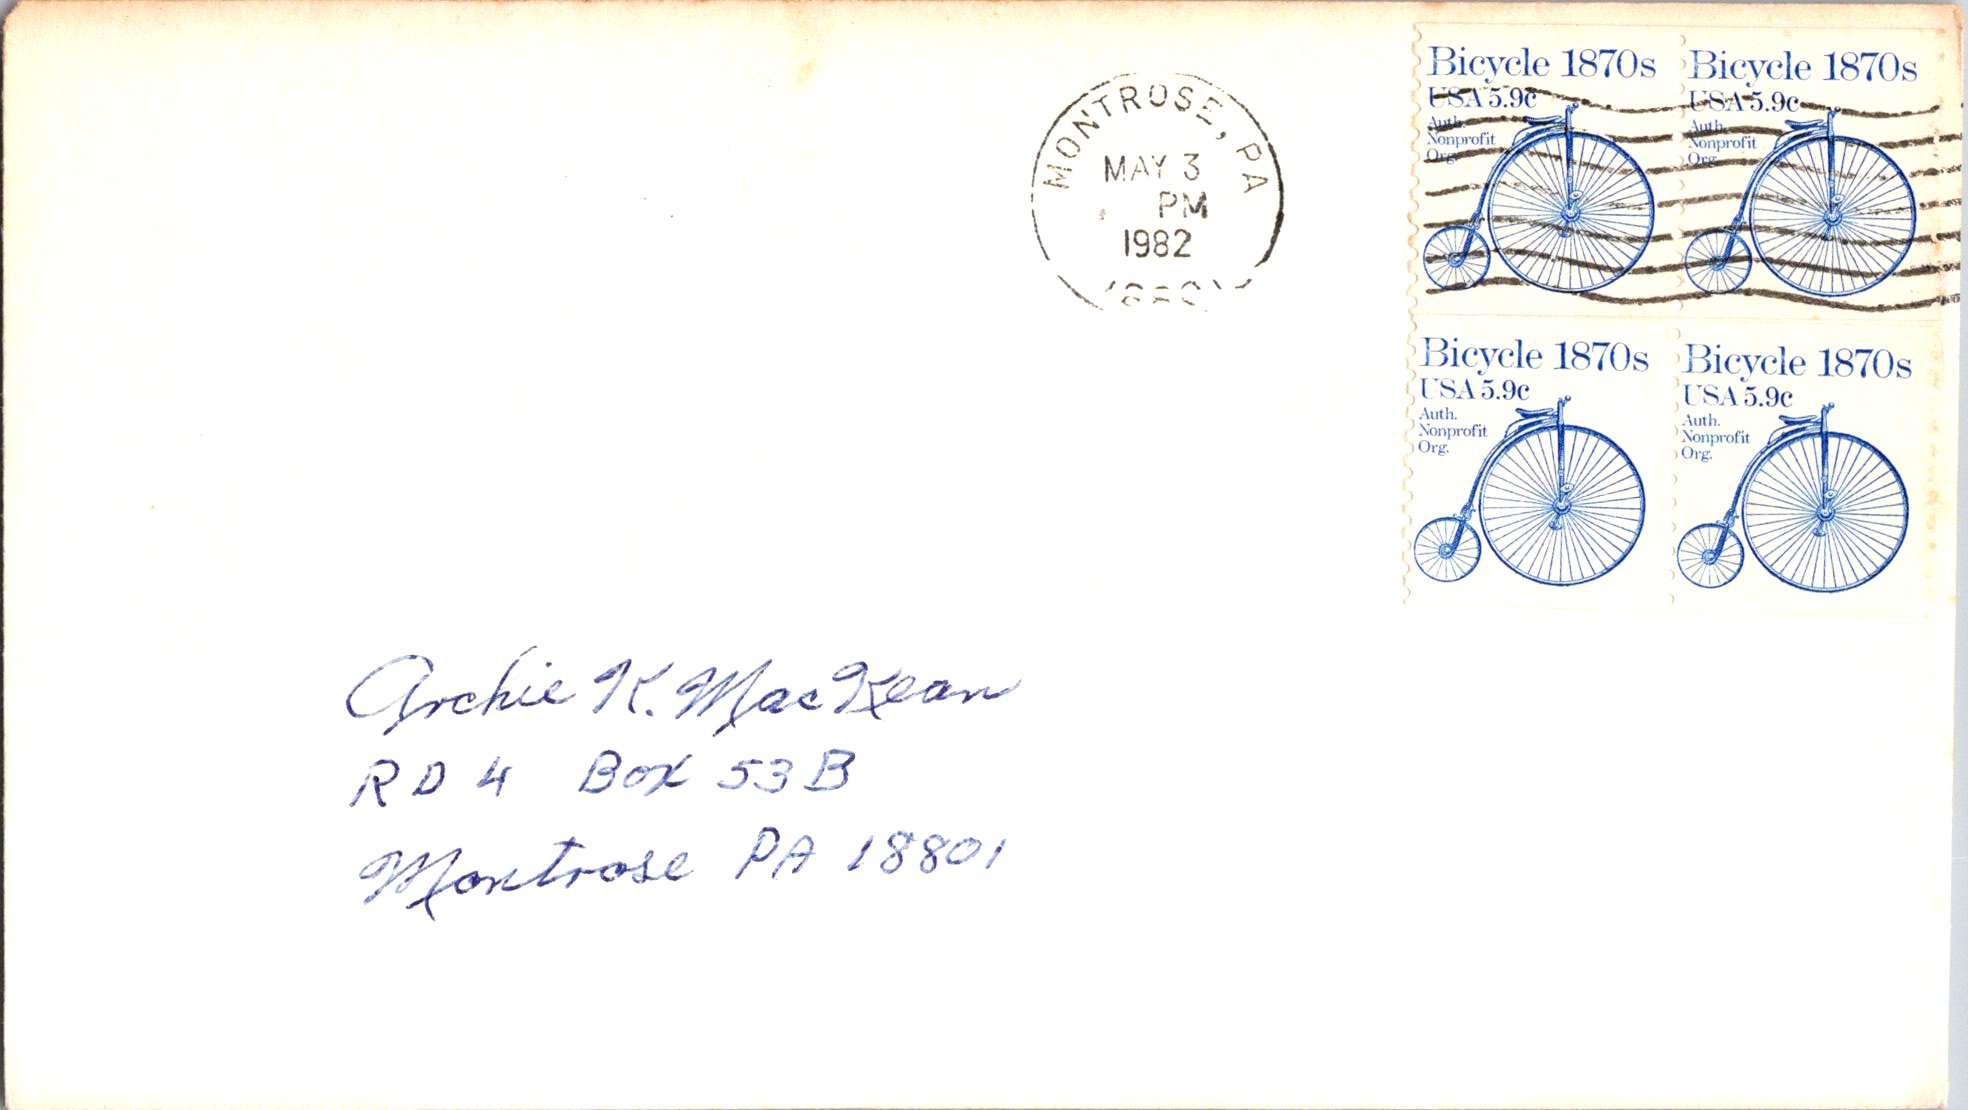 MONTROSE, PA
MAY 3
PM
1982
Bicycle 1870s
USA 5.9c
Auth.
Nonprofit
Org.
Bicycle 1870s
USA 5.9c
Auth.
Nonprofit
Org.
Bicycle 1870s
USA 5.9c
Auth.
Nonprofit
Org.
Bicycle 1870s
USA 5.9c
Auth.
Nonprofit
Org.
Archie K. MacKean
RD 4 Box 53B
Montrose PA 18801